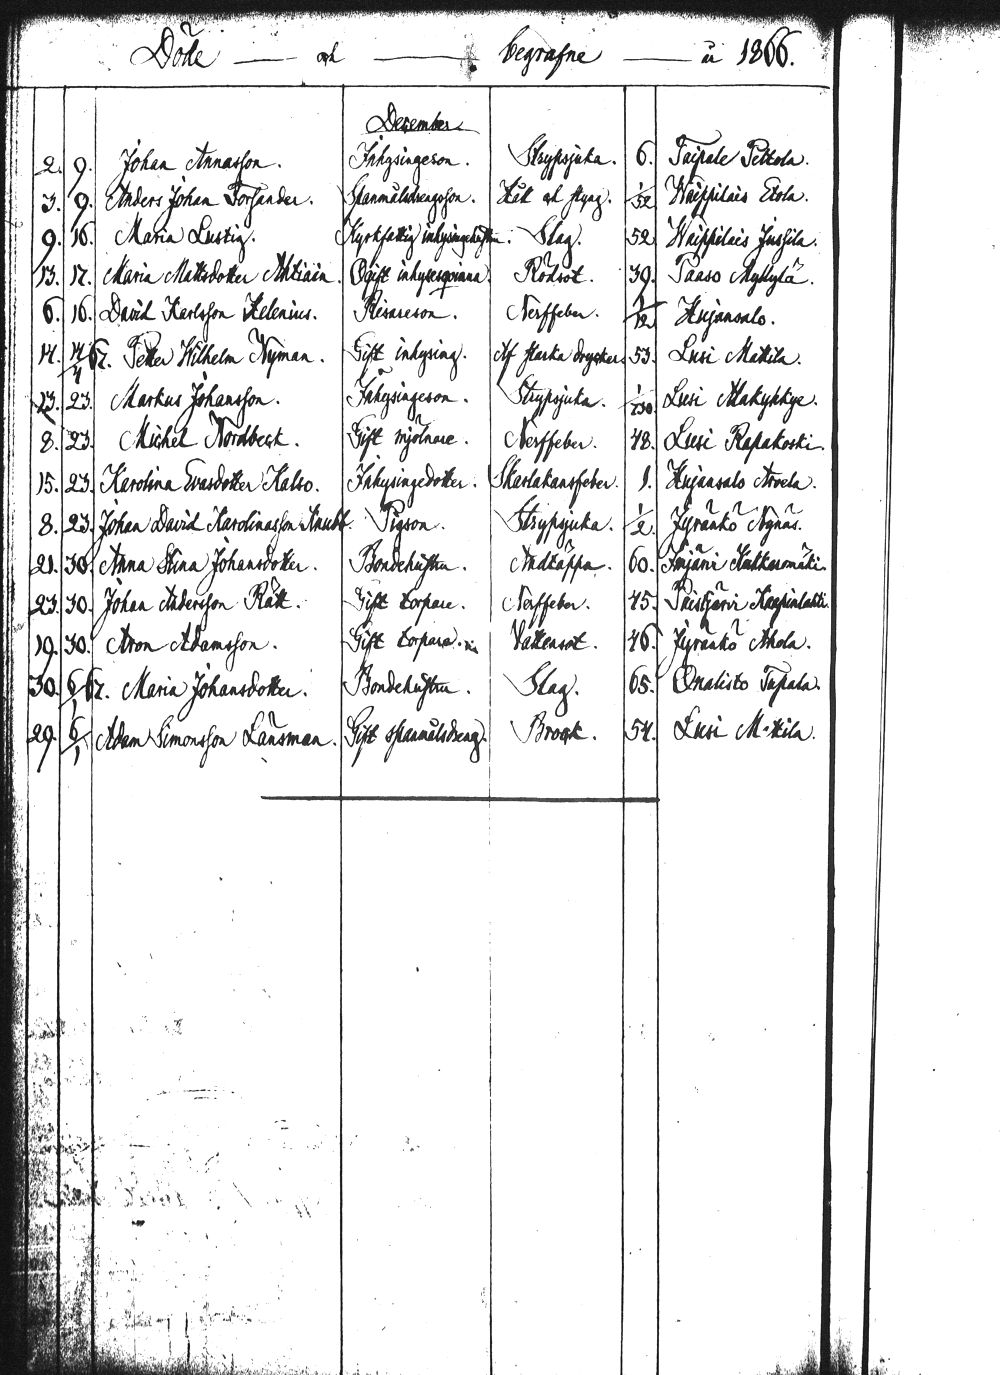 Döde — och — begrafne — år 1866.
December
2. 9. Johan Annasson. Inhysingeson. Strypsjuka. 6. Taipale Peltola.
3. 9. Anders Johan Forsander. Spanmålsdrengsson. Håll och styng. 1/52 Waippilais Etola.
9. 16. Maria Lustig. Kyrkfattig inhysingehustru. Slag. 52 Waippilais Jussila.
13. 17. Maria Mattsdotter Ahtiain. Ogift inhysesqvinna. Rödsot. 39. Paaso Myllylä.
6. 16. David Karlsson Helenius. Resareson. Nerffeber. 1/12 Hujansalo.
14. 14/4 67. Petter Wilhelm Nyman. Gift inhysing. Af starka drycker. 53. Lusi Mattila.
23. 23. Markus Johansson. Inhysingeson. Strypsjuka. 1/730 Lusi Makykkye.
8. 23. Michel Nordbeck. Gift mjölnare. Nerffeber. 48. Lusi Rapakoski.
15. 23. Karolina Evasdotter Kalso. Inhysingedotter. Skarlakansfeber. 1. Hujansalo Arvela.
8. 23. Johan David Karolinasson Knubb. Pigson. Strypsjuka. 1/2. Jyränkö Nynäs.
21. 30. Anna Stina Johansdotter. Bondehustru. Andtäppa. 60. Imjärvi Kulkaromäki.
23. 30. Johan Andersson Rätt. Gift torpare. Nerffeber. 45. Paistjärvi Kaapinlahti.
19. 30. Aron Adamsson. Gift torpare. Vattensot. 46. Jyränkö Ahola.
30. 6/1 67. Maria Johansdotter. Bondehustru. Slag. 65. Onalisto Tupala.
29. 6/1 Adam Simonsson Länsman. Gift spanmålsdreng. Brock. 54. Lusi Mattila.